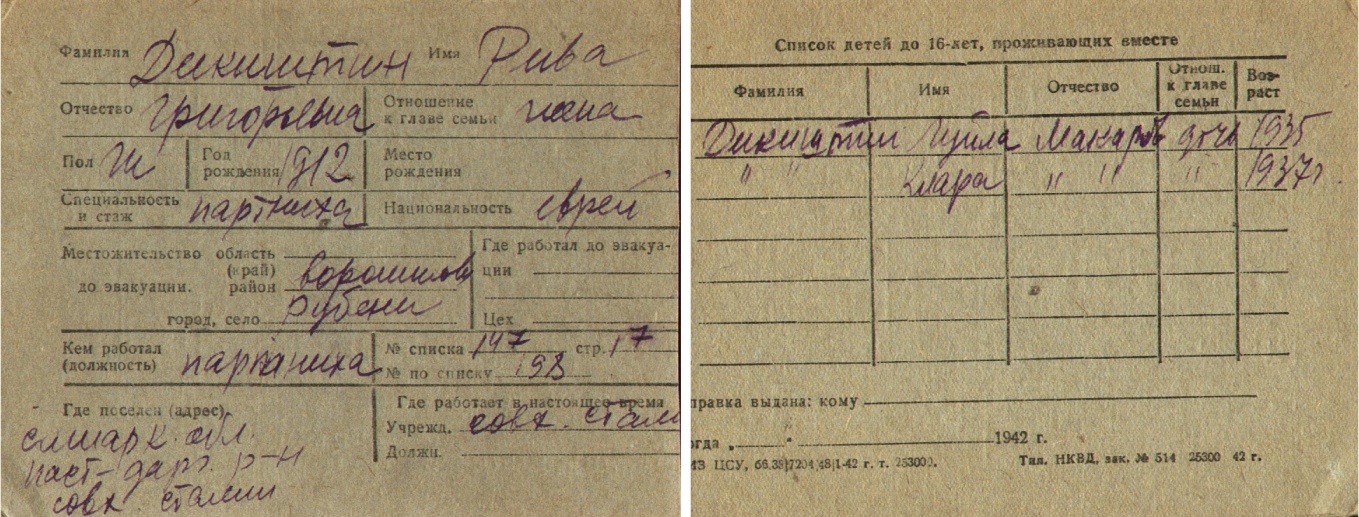 Фамилия Дикиштин Имя Рива
Отчество Григорьевна Отношение к главе семьи жена
Пол Ж Год рождения 1912 Место рождения
Специальность и стаж партниха Национальность еврей
Местожительство область
(край)
до эвакуации. район Ворошилов
город, село Рубежн
Где работал до эвакуа-
ции
Цех
Кем работал (должность) № списка 147 стр. 17
№ по списку 198
Где поселен (адрес)
обл.
р-н
совх. Сталин
Где работает в настоящее время
Учрежд. совх. Стали
Должн.
Список детей до 16-лет, проживающих вместе
Фамилия Имя Отчество Отнош. к главе семьи Воз-раст
Дикиштин Макаров дочь 1935
" " Клара " " " 1937г
правка выдана: кому
огда „ " 1942 г.
ИЗ ЦСУ, 66.39)7204(48)1-42 г. т. 253000. Тип. НКВД, зак. № 514 25300 42 г.